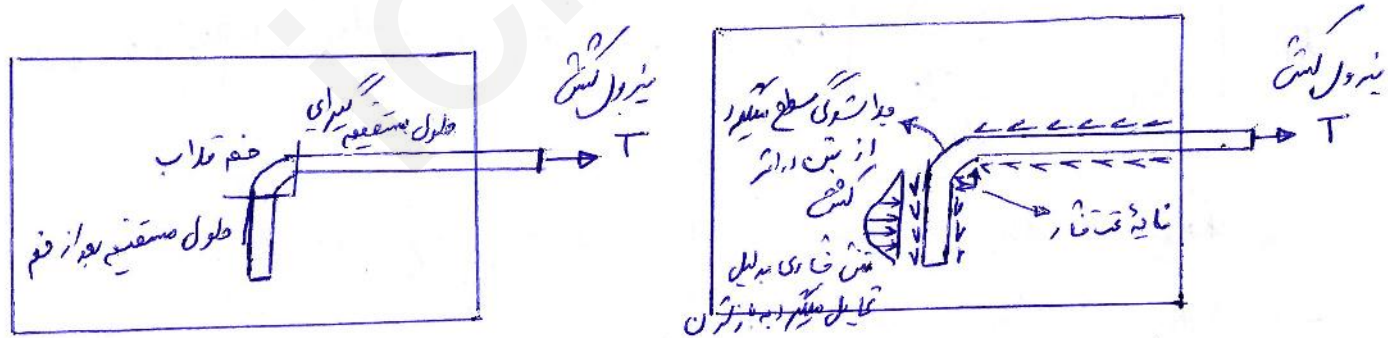 نیروی کشش
T
طول مستقیم گیرایی
خم قلاب
طول مستقیم بعد از خم
نیروی کشش
T
جدا شدگی سطح میلگرد
از بتن در اثر
کشش
ناحیه تحت فشار
تنش فشاری بدلیل
تمایل میلگرد به باز شدن